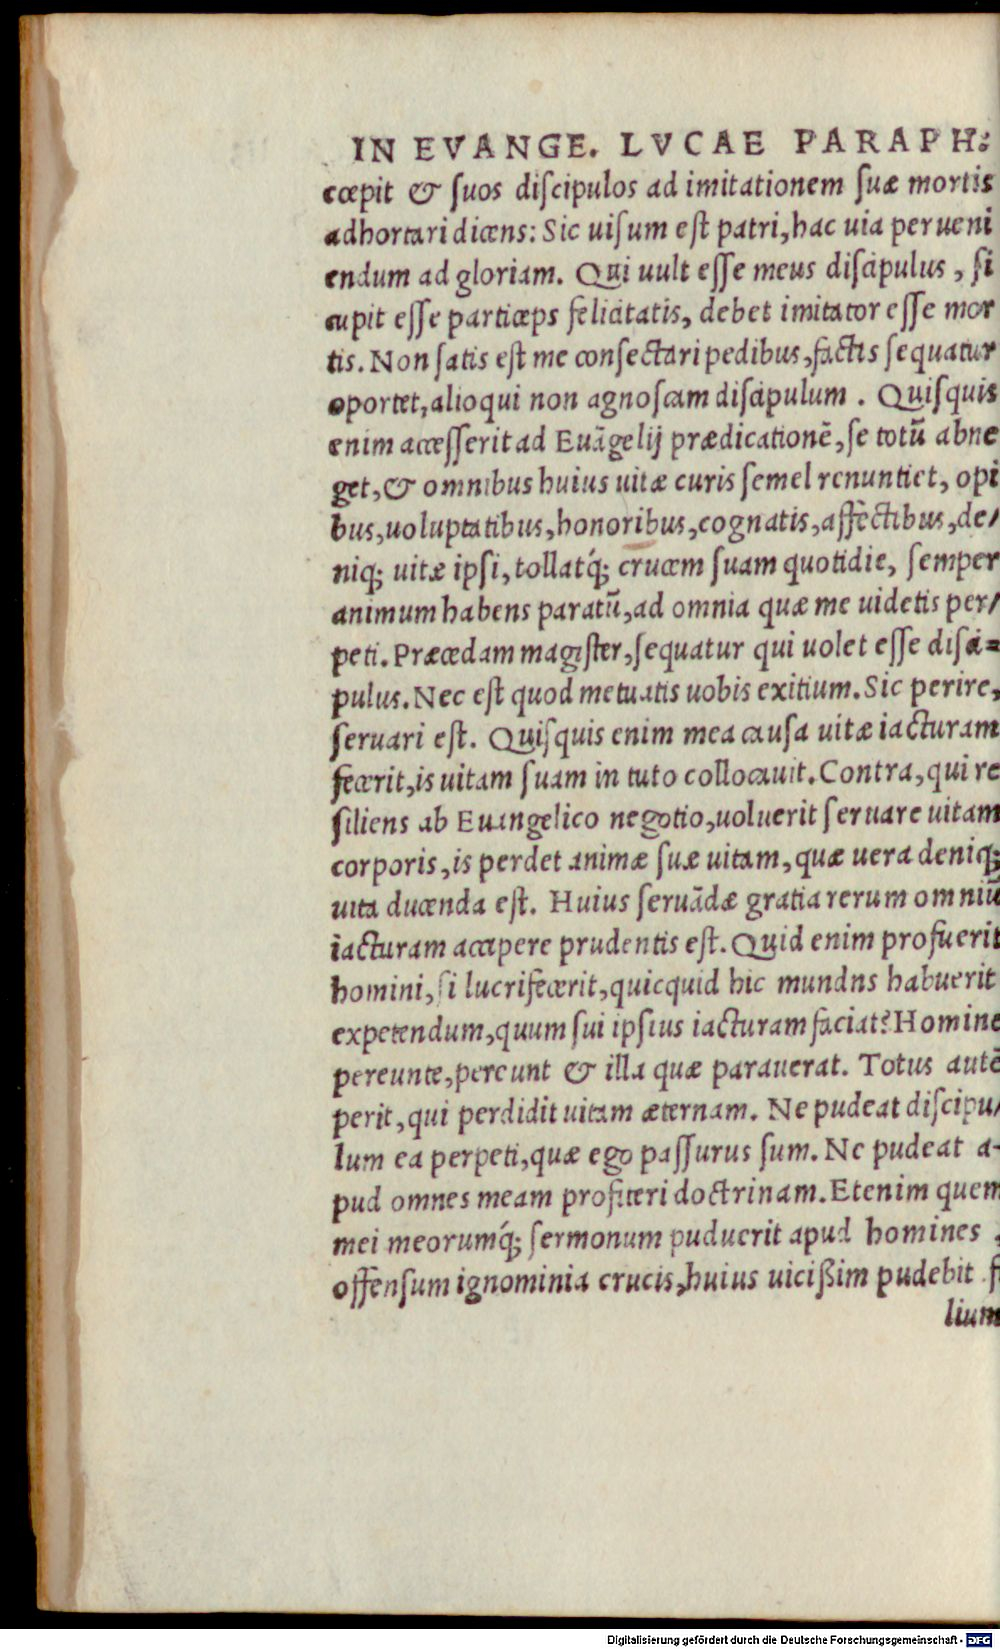 IN EVANGE. LVCAE PARAPH:
cœpit & ſuos diſcipulos ad imitationem ſuæ mortis
adhortari dicens: Sic uiſum eſt patri, hac uia perueni
endum ad gloriam. Qui uult eſſe meus diſcipulus, ſi
cupit eſſe particeps felicitatis, debet imitator eſſe mor
tis. Non ſatis eſt me conſectari pedibus, factis ſequatur
oportet, alioqui non agnoſcam diſcipulum. Quiſquis
enim acceſſerit ad Euãgelij prædicationẽ, ſe totũ abne
get, & omnibus huius uitæ curis ſemel renuntiet, opi
bus, uoluptatibus, honoribus, cognatis, affectibus, de/
niq; uitæ ipſi, tollatq́; crucem ſuam quotidie, ſemper
animum habens paratũ, ad omnia quæ me uidetis per/
peti. Præcedam magiſter, ſequatur qui uolet eſſe diſci=
pulus. Nec eſt quod metuatis uobis exitium. Sic perire,
ſeruari eſt. Quiſquis enim mea cauſa uitæ iacturam
fecerit, is uitam ſuam in tuto collocauit. Contra, qui re
ſiliens ab Euangelico negotio, uoluerit ſeruare uitam
corporis, is perdet animæ ſuæ uitam, quæ uera deniq;
uita ducenda eſt. Huius ſeruãdæ gratia rerum omniũ
iacturam accipere prudentis eſt. Quid enim profuerit
homini, ſi lucrifecerit, quicquid hic mundns habuerit
expetendum, quum ſui ipſius iacturam faciat? Homine
pereunte, pereunt & illa quæ parauerat. Totus autẽ
perit, qui perdidit uitam æternam. Ne pudeat diſcipu/
lum ea perpeti, quæ ego paſſurus ſum. Ne pudeat a-
pud omnes meam profiteri doctrinam. Etenim quem
mei meorumq́; ſermonum puduerit apud homines,
offenſum ignominia crucis, huius uicißim pudebit fi
lium
Digitalisierung gefördert durch die Deutsche Forschungsgemeinschaft - DFG